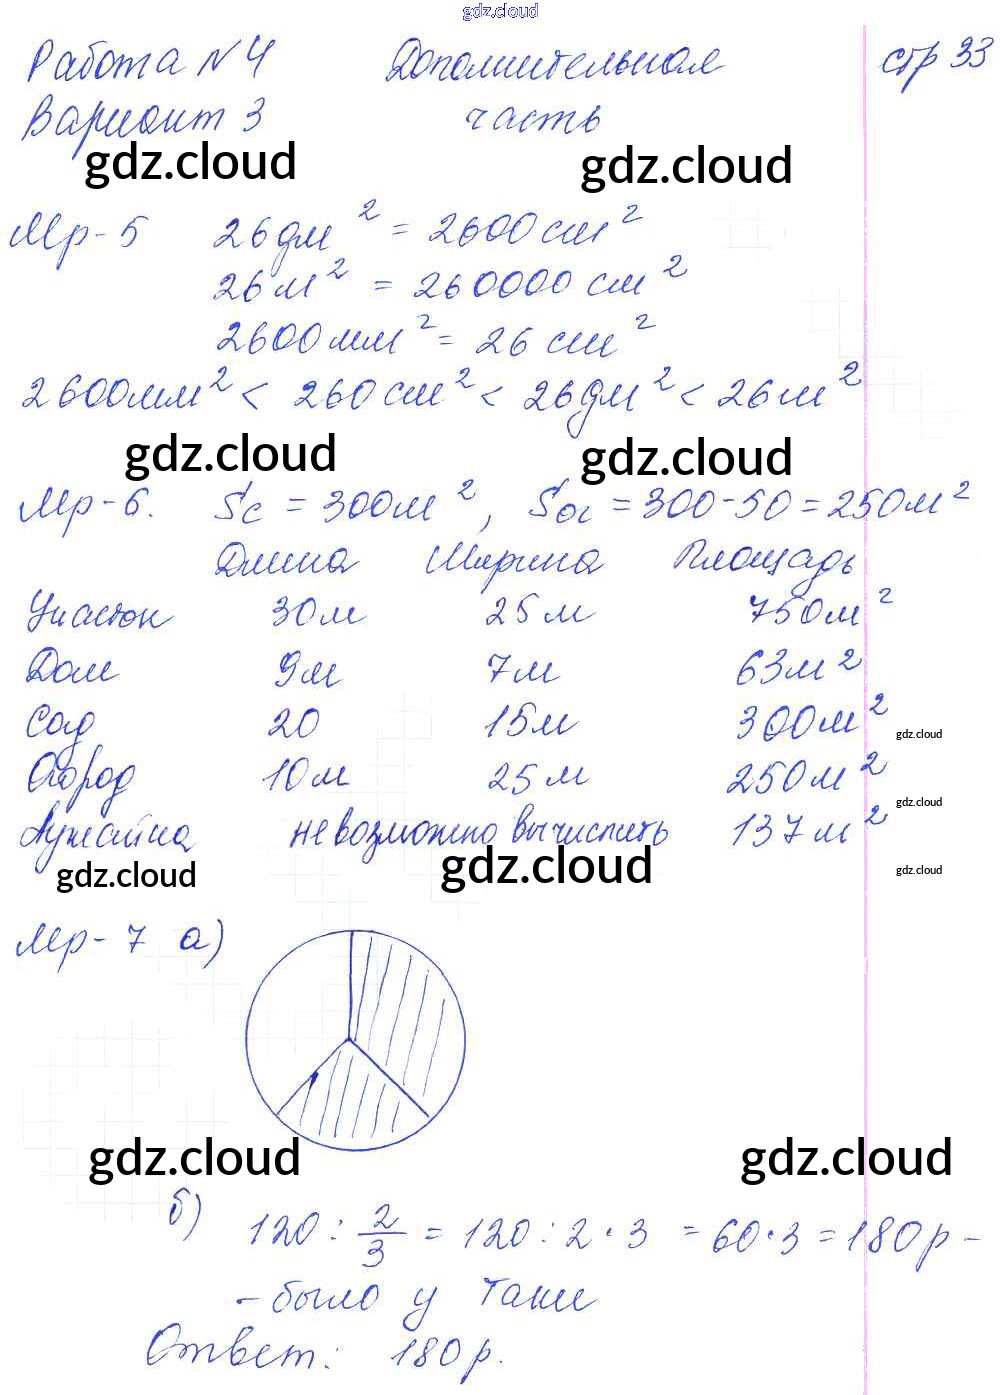 gdz.cloud
Работа №4 Дополнительная стр 33
Вариант 3 часть
gdz.cloud gdz.cloud
Мр-5 26 дм² = 2600 см²
26 м² = 260000 см²
2600 мм² = 26 см²
2600мм² < 260 см² < 26 дм² < 26 м²
gdz.cloud gdz.cloud
Мр-6. Sс = 300 м², Sог = 300-50 = 250 м²
Длина Ширина Площадь
Участок 30 м 25 м 750 м²
Дом 9м 7м 63 м²
Сад 20 15м 300 м²
gdz.cloud
Огород 10 м 25 м 250 м²
gdz.cloud
Лужайка невозможно вычислить 137 м²
gdz.cloud gdz.cloud gdz.cloud
Мр-7 а)
gdz.cloud gdz.cloud
б) 120 : 2/3 = 120 : 2 · 3 = 60 · 3 = 180 р -
- было у Тани
Ответ: 180 р.